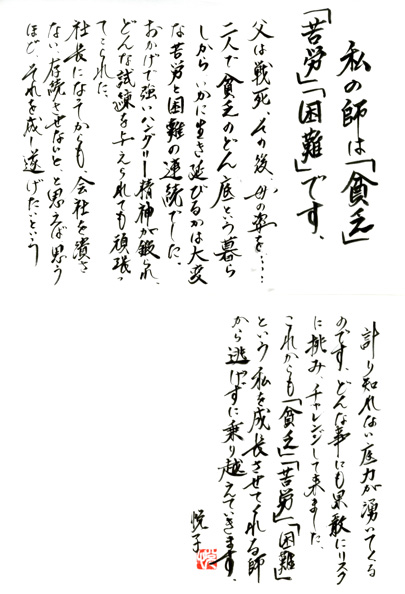 私の師は「貧乏」
「苦労」「困難」です、
父は戦死、その後、母の姿を……
二人で貧乏のどん底という暮ら
しから いかに生き延びるかは大変
な苦労と困難の連続でした、
おかげで強いハングリー精神が鍛られ、
どんな試練を与えられても頑張っ
てこられた、
社長になってからも、会社を潰さ
ない、存続させないと、と思えば思う
ほど、それを成し遂げたいという
計り知れない底力が湧いてくる
のです、どんな事にも果敢にリスク
に挑み、チャレンジして来ました、
これからも「貧乏」「苦労」「困難」
という 私を成長させてくれる師
から逃げずに乗り越えていきます、
悦子